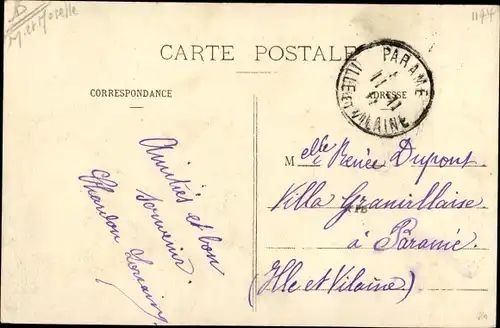 M. et Moselle
1194
CARTE POSTALE
PARAMÉ
ILLE-ET-VILAINE
CORRESPONDANCE
ADRESSE
Amitiés et bon
souvenir.
Chardon
Melle Renée Dupont
Villa Granvillaise
à Paramé.
(Ille et Vilaine)